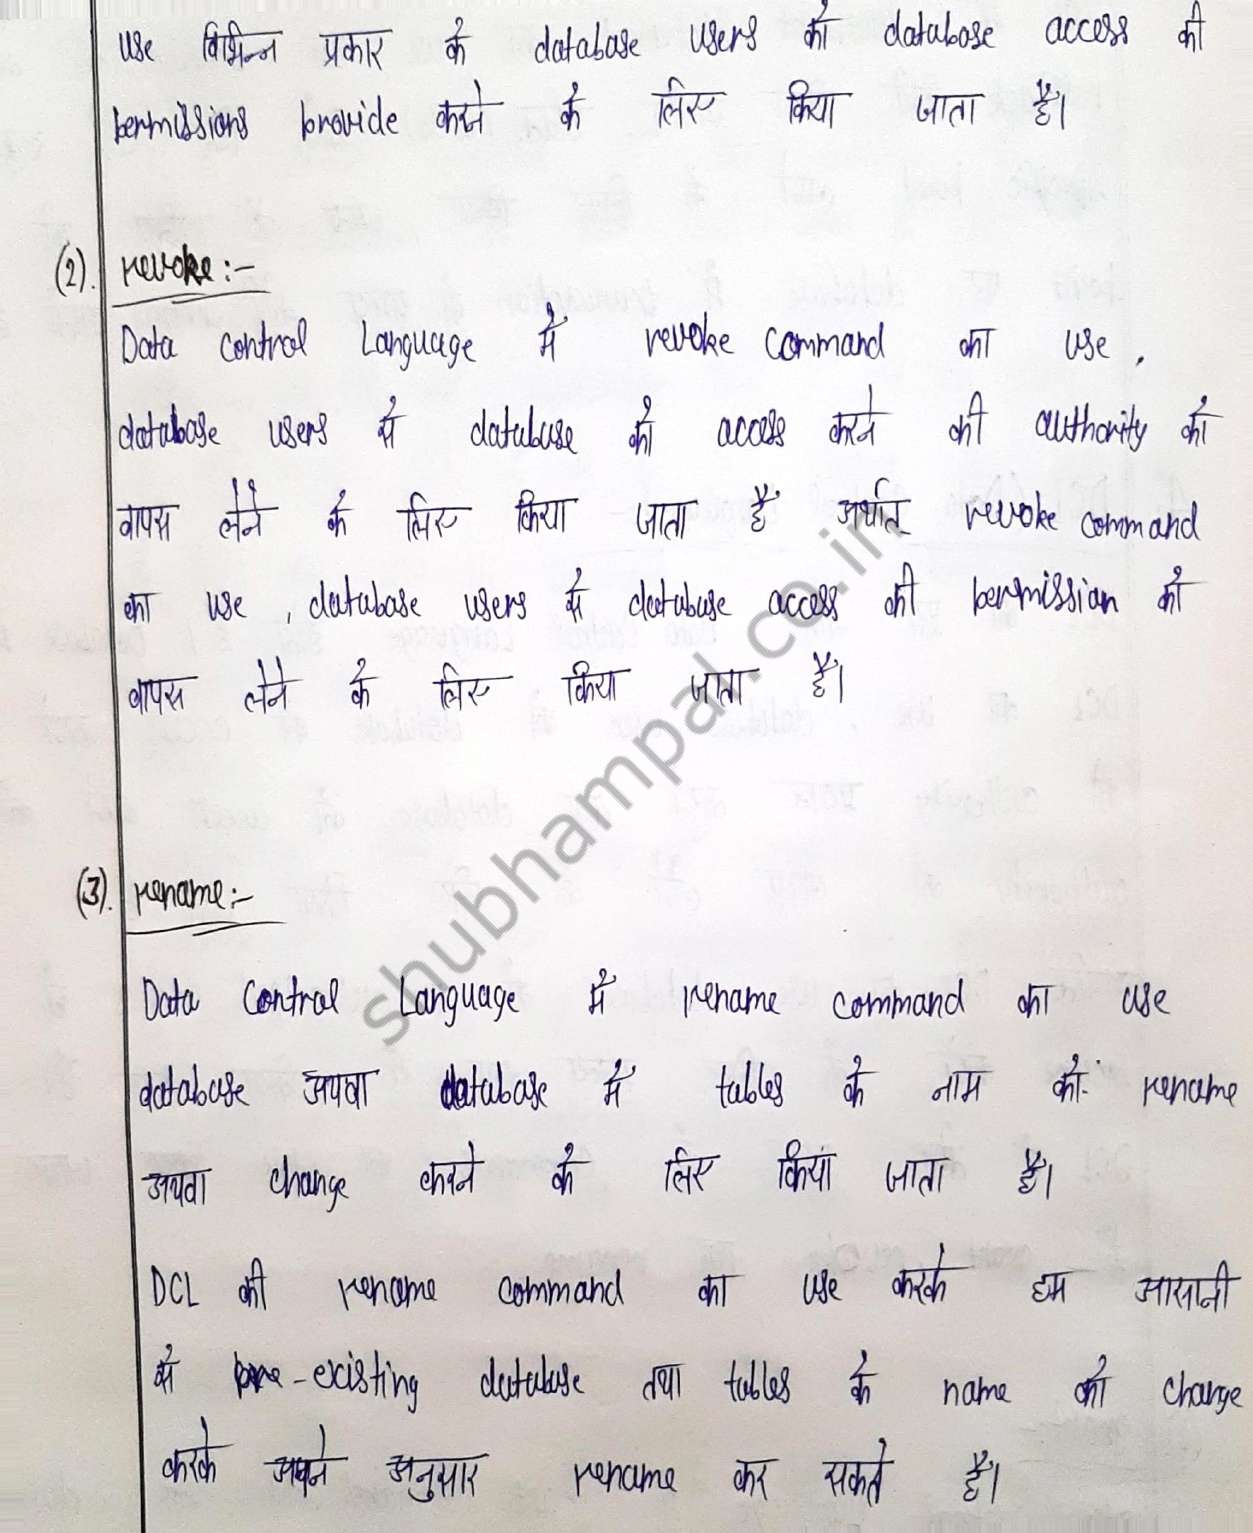 use विभिन्न प्रकार के database users को database access की
permissions provide करने के लिए किया जाता है।
(2). revoke:-
Data Control Language में revoke command का use ,
database users से database को access करने की authority को
वापस लेने के लिए किया जाता है अर्थात् revoke command
का use , database users से database access की permission को
वापस लेने के लिए किया जाता है।
(3). rename:-
Data Control Language में rename command का use
database अथवा database में tables के नाम को rename
अथवा change करने के लिए किया जाता है।
DCL की rename command का use करके हम आसानी
से pre-existing database तथा tables के name को change
करके अपने अनुसार rename कर सकते है।
shubhampal.co.in